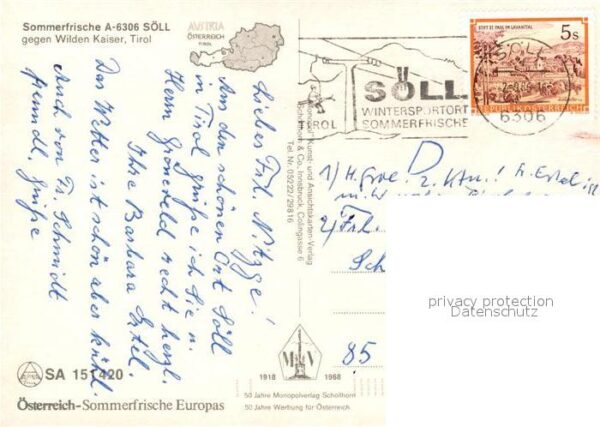 Sommerfrische A-6306 SÖLL
gegen Wilden Kaiser, Tirol
AUSTRIA
ÖSTERREICH
TIROL
STIFT ST. PAUL IM LAVANTTAL
5s
REPUBLIK ÖSTERREICH
SÖLL
6306
TIROL
SÖLL
WINTERSPORTORT
SOMMERFRISCHE
Liebes Frl. Nitzge!
An den schönen Ort Söll
in Tirol grüße ich Sie u.
Herrn Gronefeld recht herzl.
Ihre Barbara Ertel.
Das Wetter ist schön aber kühl.
Auch von Fr. Schmidt
freundl. Grüße
Kunst- und Ansichtskarten-Verlag
Schöllhorn & Co., Innsbruck, Colingasse 6
Tel. Nr. 05222/29816
D
1) H. z. Ktn!
2) Frl.
Sch
85
privacy protection
Datenschutz
SA 151420
MV
1918 1968
50 Jahre Monopolverlag Schöllhorn
50 Jahre Werbung für Österreich
Österreich-Sommerfrische Europas